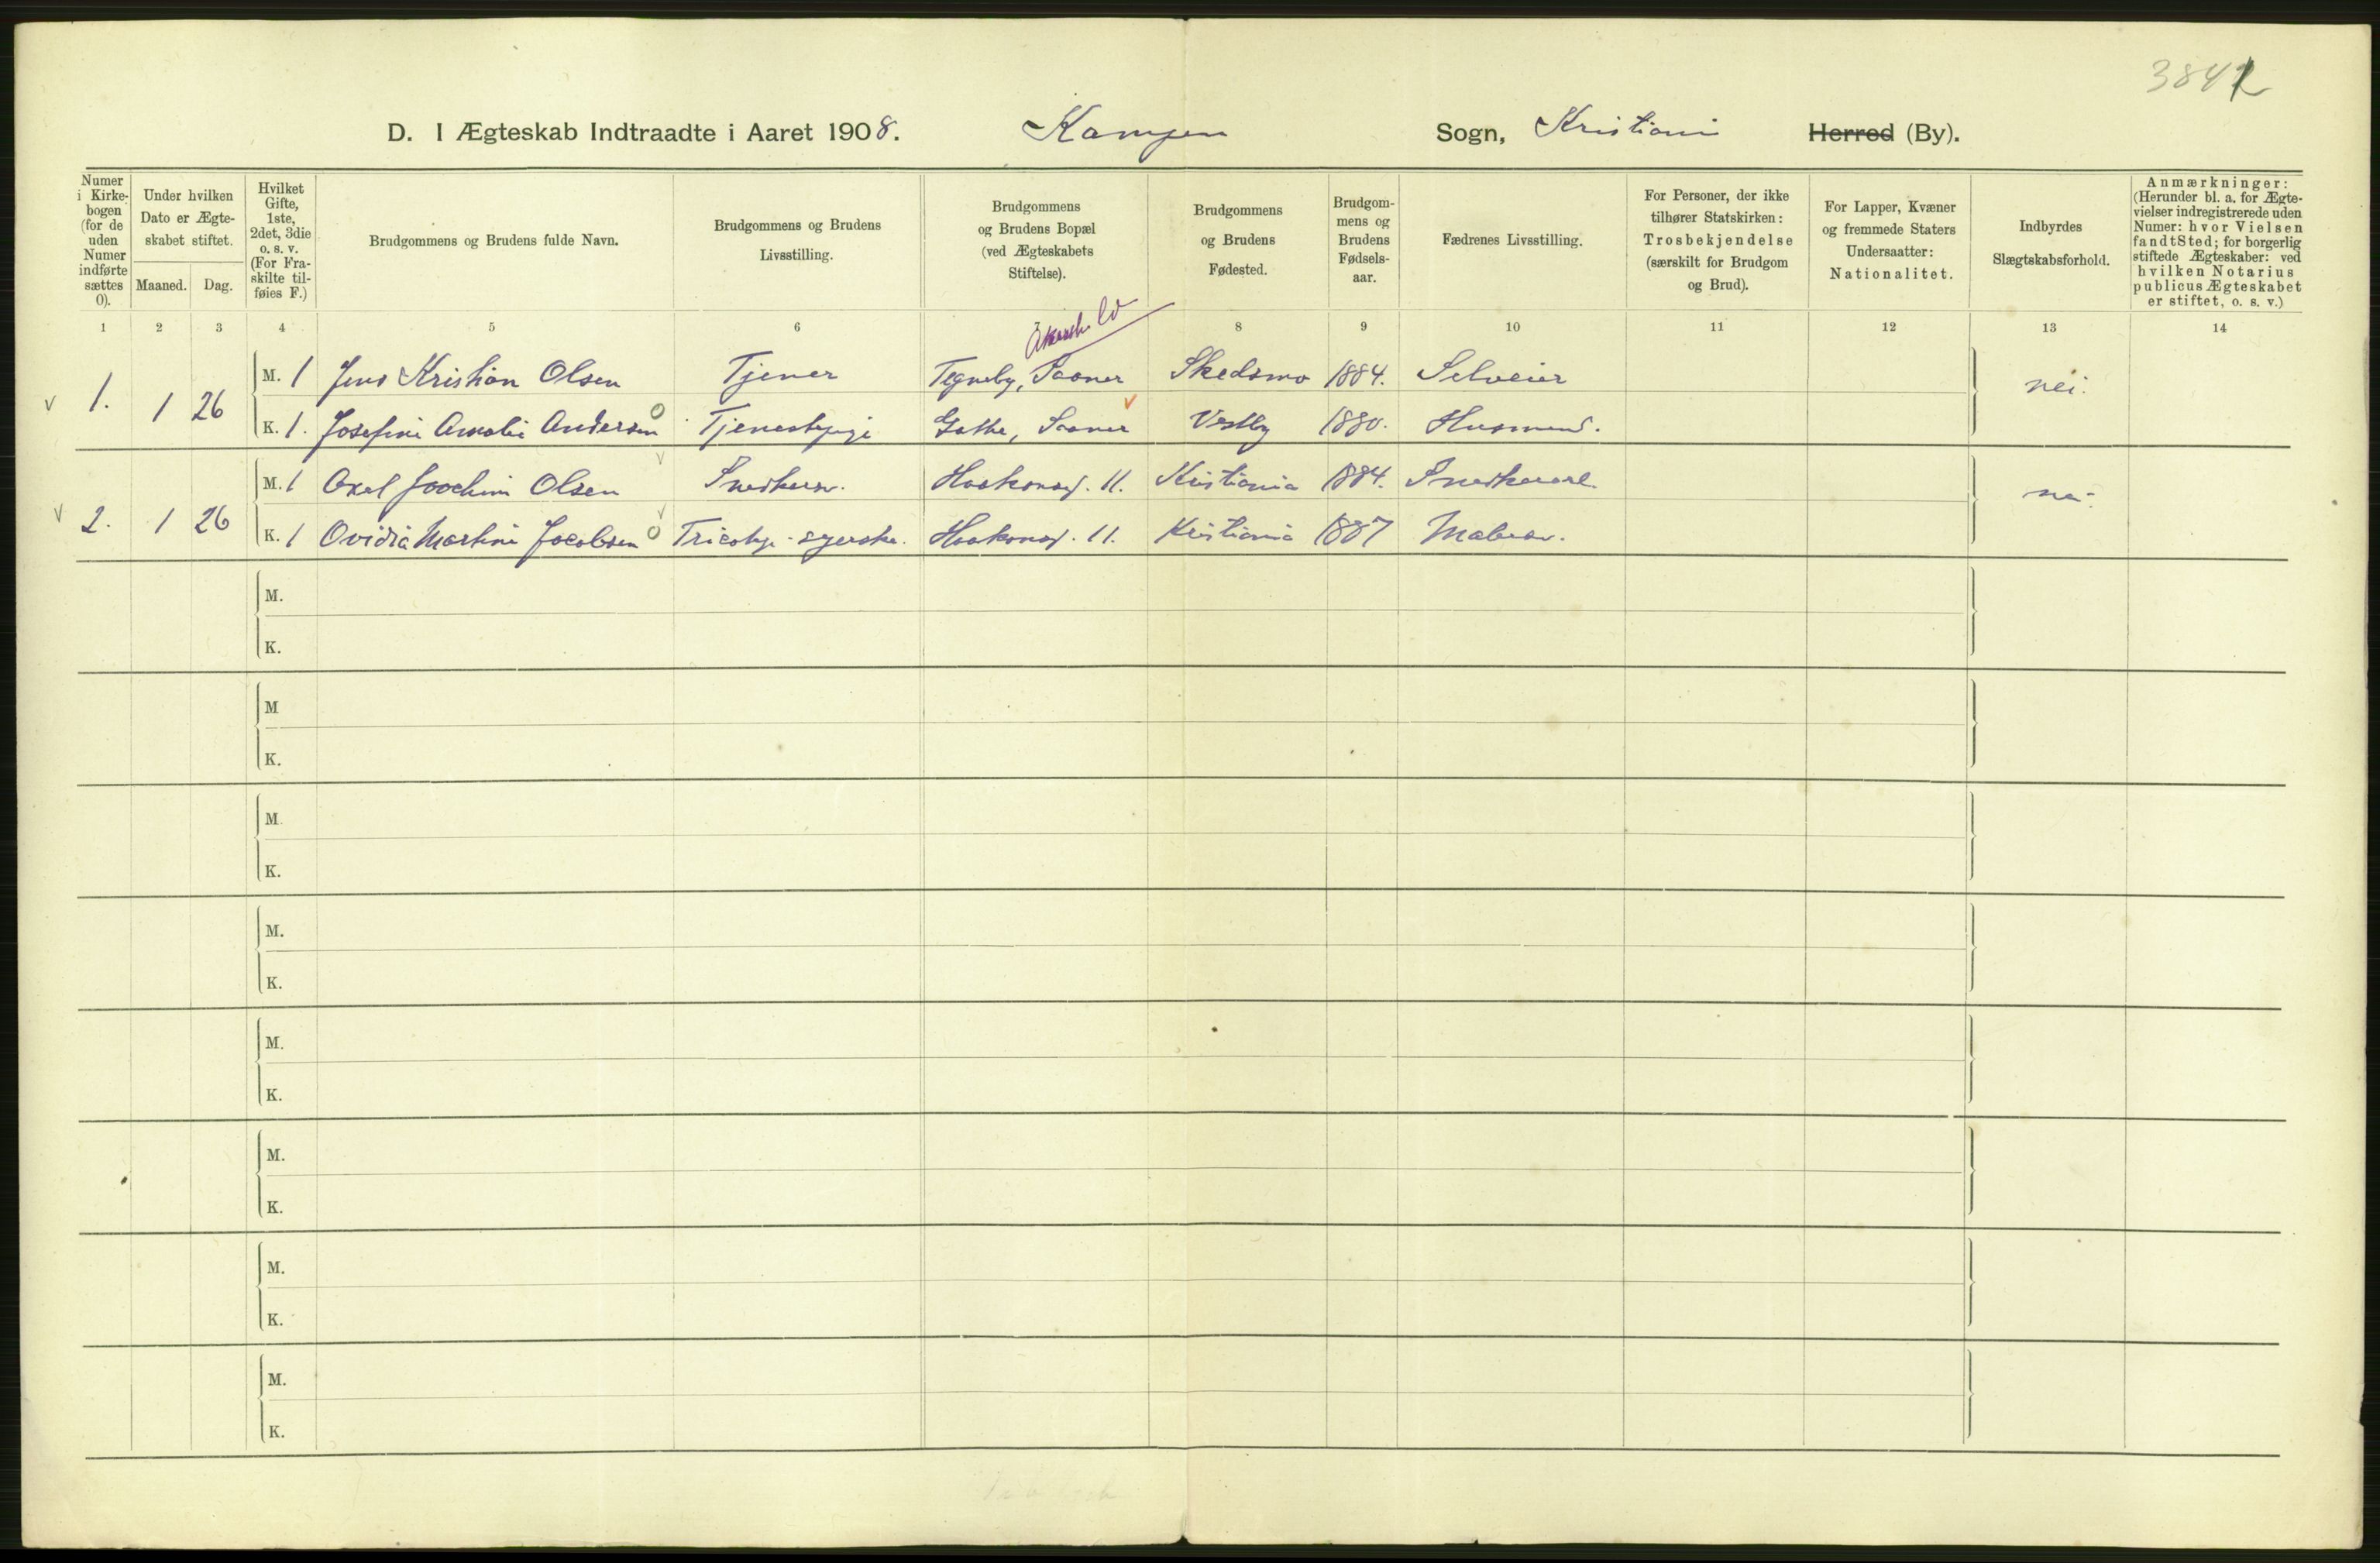 3842
D. I Ægteskab Indtraadte i Aaret 1908. Kampen Sogn, Kristiani Herred (By).
Numer i Kirke-bogen (for de uden Numer indførte sættes 0).
Under hvilken Dato er Ægte-skabet stiftet.
Maaned. Dag.
Hvilket Gifte, 1ste, 2det, 3die o. s. v. (For Fra-skilte til-føies F.)
Brudgommens og Brudens fulde Navn.
Brudgommens og Brudens Livsstilling.
Brudgommens og Brudens Bopæl (ved Ægteskabets Stiftelse).
Brudgommens og Brudens Fødested.
Brudgom-mens og Brudens Fødsels-aar.
Fædrenes Livsstilling.
For Personer, der ikke tilhører Statskirken: Trosbekjendelse (særskilt for Brudgom og Brud).
For Lapper, Kvæner og fremmede Staters Undersaatter: Nationalitet.
Indbyrdes Slægtskabsforhold.
Anmærkninger: (Herunder bl. a. for Ægte-vielser indregistrerede uden Numer: hvor Vielsen fandt Sted; for borgerlig stiftede Ægteskaber: ved hvilken Notarius publicus Ægteskabet er stiftet, o. s. v.)
1 2 3 4 5 6 7 8 9 10 11 12 13 14
1. 1 26
M. 1 Jens Kristian Olsen Tjener Tegneby, Saaner Skedsmo 1884. Selveier nei.
K. 1. Josefine Amalie Andersen Tjenestepige Saaner Vestby 1880. Husmand.
2. 1 26
M. 1 Axel Joachim Olsen Snedkersv. Haakonsg. 11. Kristiania 1884. nei.
K. 1 Ovidia Martine Jacobsen Tricotage-syerske. Haakonsg. 11. Kristiania 1887 Malersv.
M.
K.
M
K.
M.
K.
M.
K.
M.
K.
M.
K.
M.
K.
M.
K.